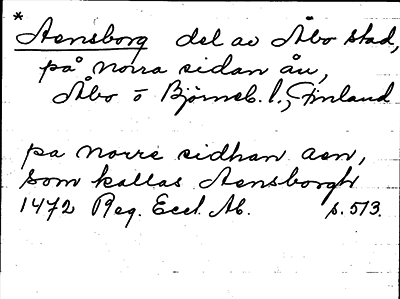 *
Aensborg del av Åbo stad,
på norra sidan ån,
Åbo o Björneb. l., Finland
pa norre sidhan aen,
som kallas Aensborgh
1472 Reg. Eccl. Ab. s. 513.